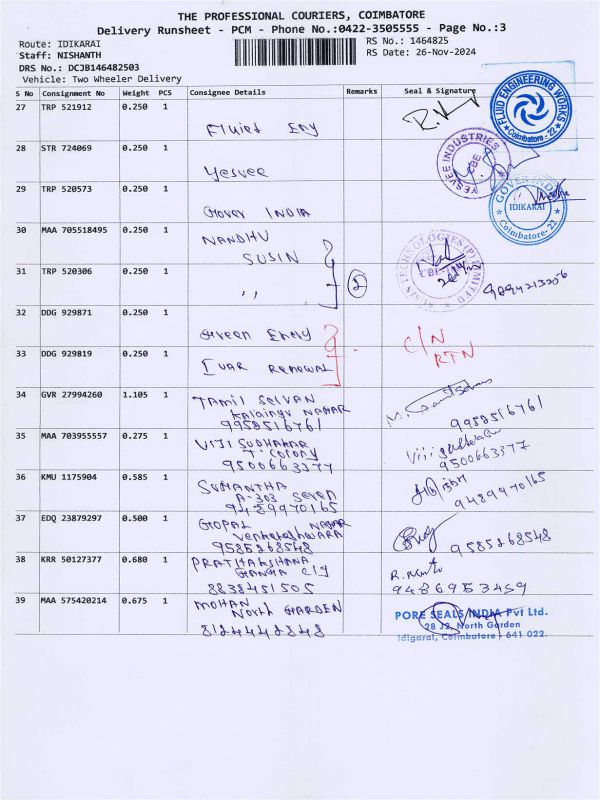 THE PROFESSIONAL COURIERS, COIMBATORE
Delivery Runsheet - PCM - Phone No.:0422-3505555 - Page No.:3
Route: IDIKARAI
RS No.: 1464825
Staff: NISHANTH
RS Date: 26-Nov-2024
DRS No.: DCJB146482503
Vehicle: Two Wheeler Delivery
S No Consignment No Weight PCS Consignee Details Remarks Seal & Signature
27 TRP 521912 0.250 1
FLUID ENGINEERING WORKS
Coimbatore - 22
28 STR 724069 0.250 1
Yesvee
YESVEE INDUSTRIES
CBE
29 TRP 520573 0.250 1
Gover INDIA
GOVER INDIA
IDIKARAI
Coimbatore- 22
30 MAA 705518495 0.250 1
NANDHU
SUSIN
31 TRP 520306 0.250 1
,,
2
32 DDG 929871 0.250 1
Green
C/N
RTN
33 DDG 929819 0.250 1
34 GVR 27994260 1.105 1
TAMIL SELVAN
NAGAR
9952516761
9952516761
35 MAA 703955557 0.275 1
VIJI SUDHAKAR
T. Colony
9500663377
9500663377
36 KMU 1175904 0.585 1
SUMANTHA
A-303 Seven
9489970165
9489970165
37 EDQ 23879297 0.500 1
GOPAL NAGAR
9585268548
9585268548
38 KRR 50127377 0.680 1
PRATHAKSHANA
8838451505
9486953459
39 MAA 575420214 0.675 1
MOHAN
North GARDEN
8124442848
PORE SEALS INDIA Pvt Ltd.
28 J2, North Garden
Idigarai, Coimbatore - 641 022.